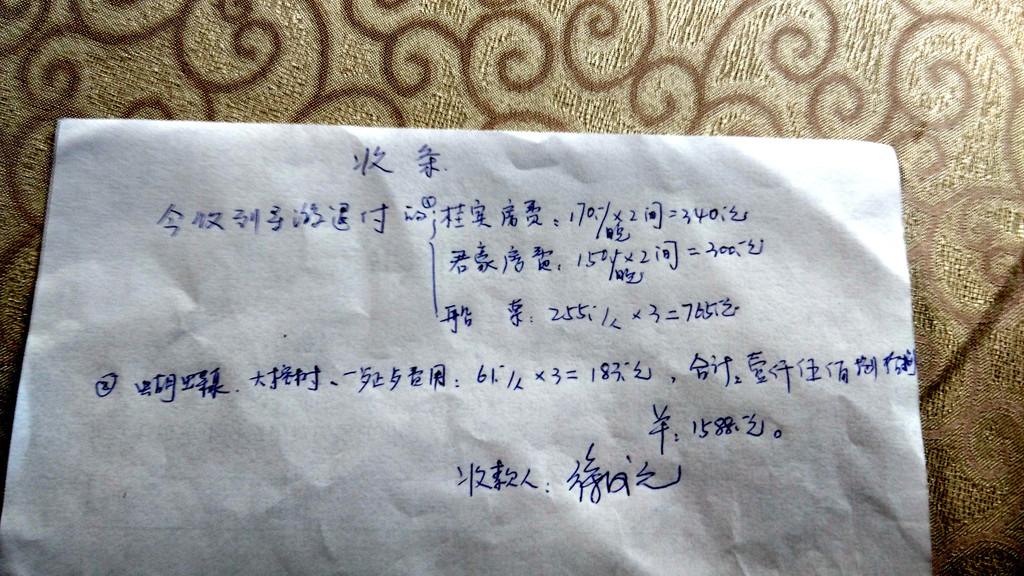 收条.
今收到导游退付的①桂宾房费:170元/晚×2间=340元
君豪房费:150元/晚×2间=300元
船 票:255元/人×3=765元
② 蝴蝶泉.大榕树、一步步费用:61元/人×3=183元,合计:壹仟伍佰捌拾捌
羊:1588元。
收款人:徐成元